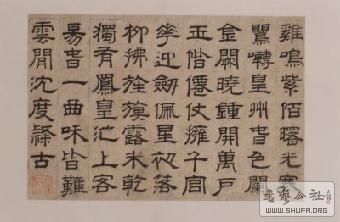 雞鳴紫陌曙光寒
鶯囀皇州春色闌
金闕曉鍾開萬戶
玉階僊仗擁千官
華迎劍佩星初落
柳拂旌旗露未乾
獨有鳳皇池上客
昜春一曲和皆難
雲間沈度隸古
書藝公社
WWW.SHUFA.ORG